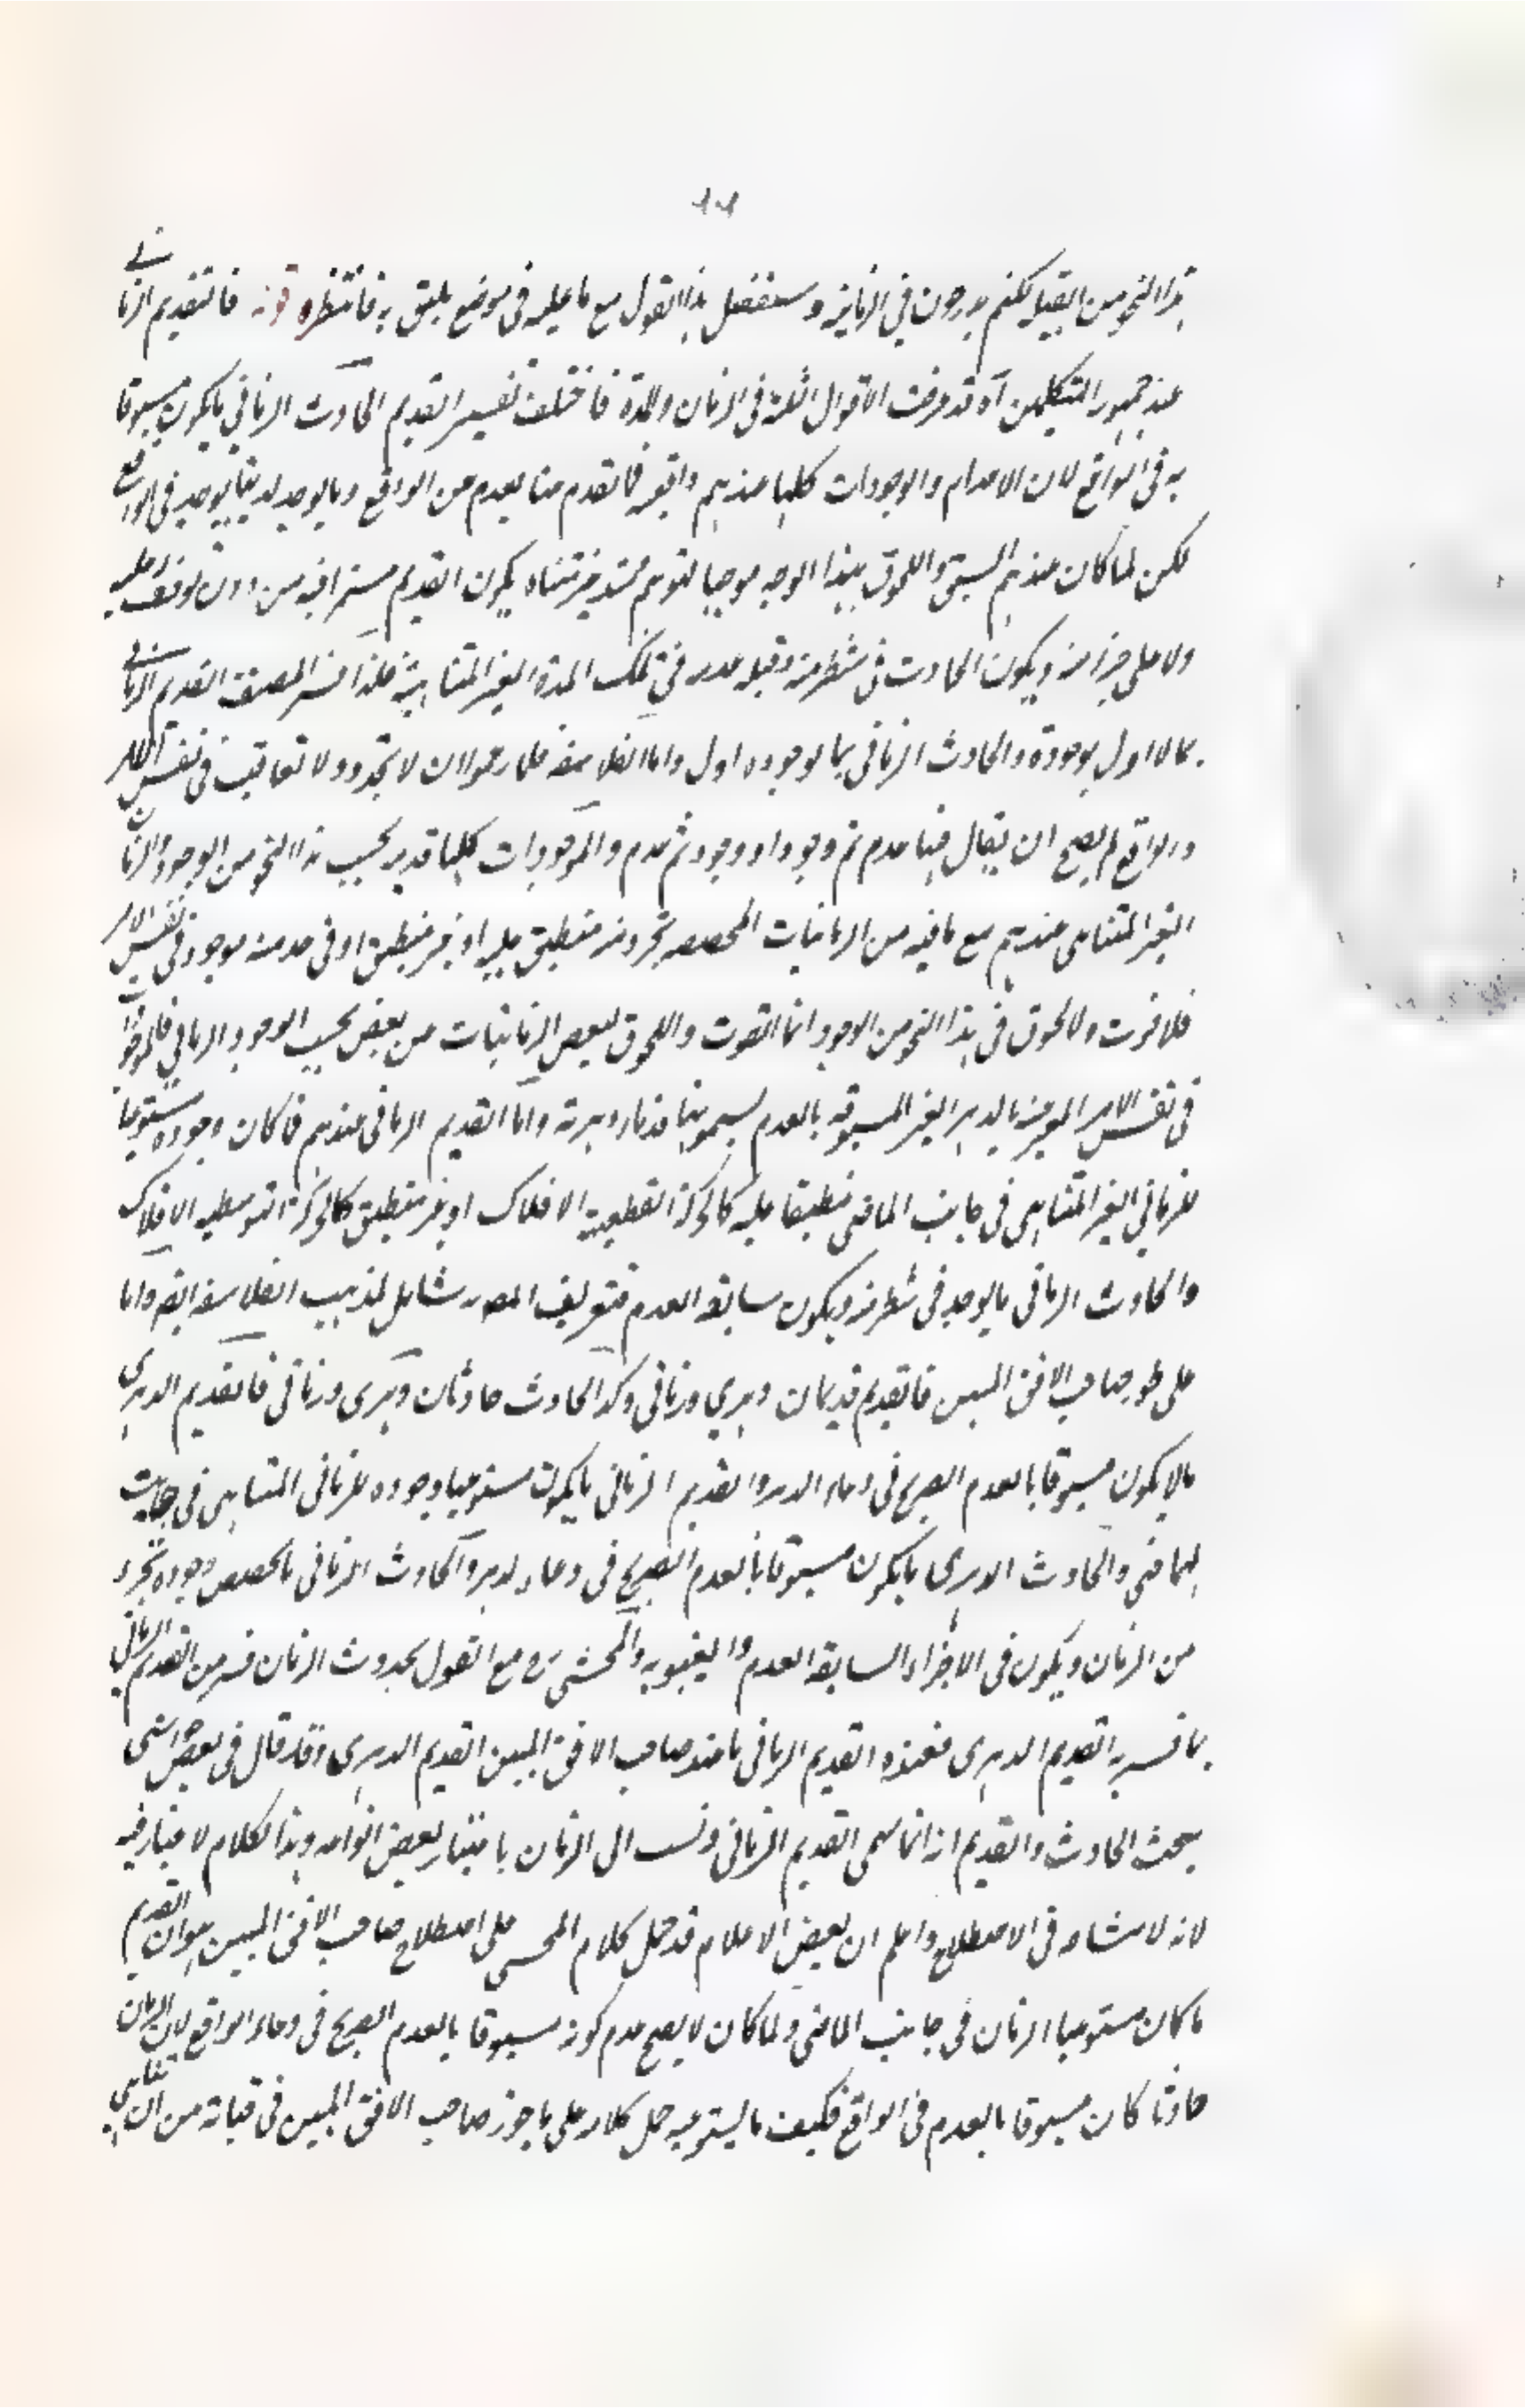 هذا النحو من القبلية لكنهم يدرجون في الزمانية وسنفصل هذا القول مع ما عليه في موضع يليق به فانتظره قوله فالقديم الزماني
عند جمهور المتكلمين آه قد عرفت الاقوال الثلثة في الزمان والمدة فاختلف تفسير القديم الحادث الزماني ما يكون مسبوقا
به في الواقع لان الاعدام والوجودات كلها عندهم واقعة فالقدم عنا يعدم من الواقع وما يوجد بعد يوجد في الواقع
لكن لما كان عندهم السبق واللحوق بهذا الوجه موجبا لتوهم ممتد غير متناه يكون القديم مستمرا فيه من دون توقف عليه
ولا على جزء منه ويكون الحادث في شطر منه وقبله عدمه في تلك المدة الغير المتناهية فلذا فسر المصنف القديم الزماني
بما لا اول لوجوده والحادث الزماني بما لوجوده اول واما الفلاسفة فلما زعموا ان لا تجدد ولا تعاقب في نفس الامر
والواقع لم يصح ان يقال فيها عدم ثم وجود او وجود ثم عدم والموجودات كلها قديمة بحسب هذا النحو من الوجود والزمان
الغير المتناهي عندهم مع ما فيه من الزمانيات المخصصة بجزء منه منطبق عليه او غير منطبق او في حد منه موجود في نفس الامر
فلا فوت ولا لحوق في هذا النحو من الوجود انما الفوت واللحوق لبعض الزمانيات من بعض بحسب الوجود الزماني فالموجودات
في نفس الامر المعبر عنه بالدهر الغير المسبوقة بالعدم يسمونها قدماء دهرية واما القديم الزماني عندهم فما كان وجوده مستوعبا
للزماني الغير المتناهي في جانب الماضي منطبقا عليه كالحركة القطعية الافلاك او غير منطبق كالحركة التوسطية الافلاك
والحادث الزماني ما يوجد في شطر منه ويكون سابقه العدم فتعريف المصنف شامل لمذهب الفلاسفة ايضا واما
على طور صاحب الافق المبين فالقديم قديمان دهري وزماني وكذا الحادث حادثان دهري وزماني فالقديم الدهري
ما لا يكون مسبوقا بالعدم الصريح في وعاء الدهر والقديم الزماني ما يكون مستوعبا وجوده للزماني المتناهي في جانب
الماضي والحادث الدهري ما يكون مسبوقا بالعدم الصريح في وعاء الدهر والحادث الزماني ما تخصص وجوده بجزء
من الزمان ويكون في الاجزاء السابقة العدم والغيبوبة والمحشي رح مع القول بحدوث الزمان فسر من القديم الزماني
بما فسر به القديم الدهري فعنده القديم الزماني ما عند صاحب الافق المبين القديم الدهري وقد قال في بعض حواشي
بحث الحادث والقديم انه انما سمي القديم الزماني ونسب الى الزمان باعتبار بعض افراده وهذا الكلام لا غبار فيه
لانه لا مشاحة في الاصطلاح واعلم ان بعض الاعلام قد حمل كلام المحشي على اصطلاح صاحب الافق المبين هو ان القديم
ما كان مستوعبا الزمان في جانب الماضي ولما كان لا يصح عدم كونه مسبوقا بالعدم الصريح في وعاء الواقع لان الزمان
حادثا كان مسبوقا بالعدم في الواقع فكيف ما يستوعبه حمل كلامه على ما جوز صاحب الافق المبين في قبساته من ان تناهي